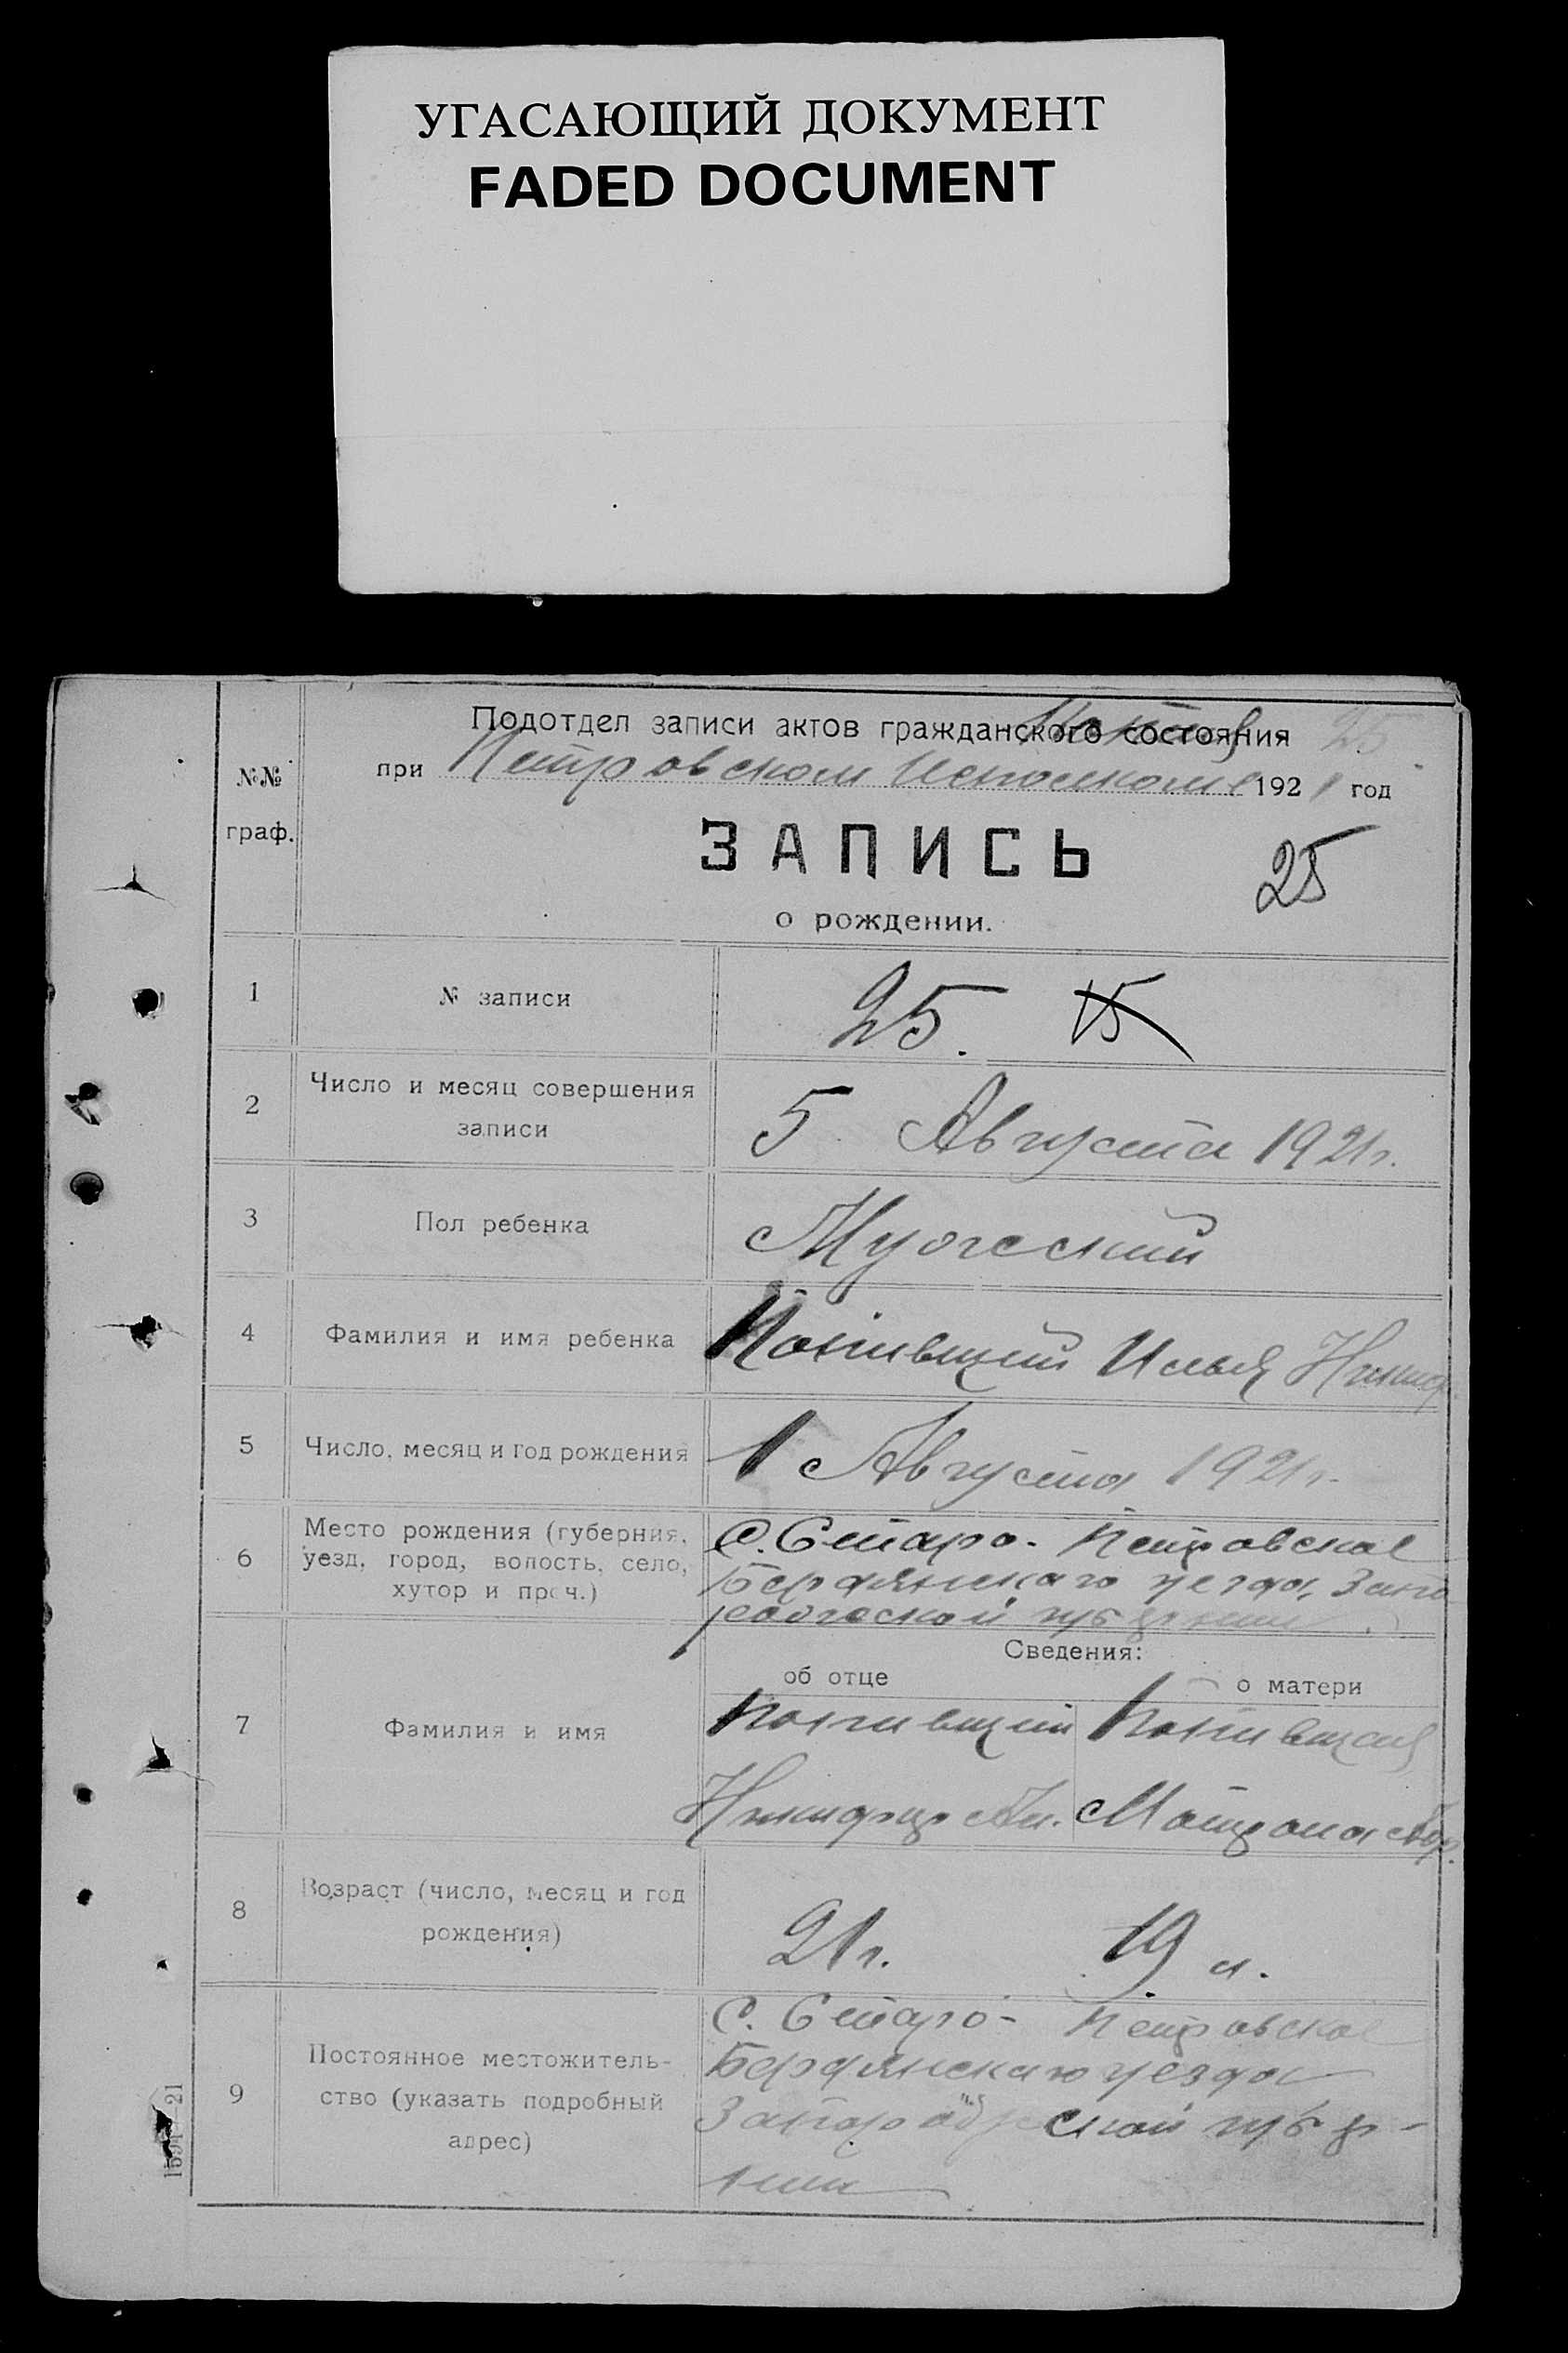 УГАСАЮЩИЙ ДОКУМЕНТ
FADED DOCUMENT
Подотдел записи актов гражданского состояния 25
при Петровском Исполкоме 1921 год
№№
граф.
ЗАПИСЬ
25
о рождении.
1 № записи 25. 15
2 Число и месяц совершения
записи 5 Августа 1921г.
3 Пол ребенка Мужеский
4 Фамилия и имя ребенка Илья
5 Число, месяц и год рождения 1 Августа 1921г.
6 Место рождения (губерния,
уезд, город, волость, село,
хутор и проч.)
С. Старо-Петровское
Бердянскаго уезда, Запо
рожской губернии
Сведения:
об отце о матери
7 Фамилия и имя
Матрона
8 Возраст (число, месяц и год
рождения) 21г. 19 л.
9 Постоянное местожитель-
ство (указать подробный
адрес)
С. Старо-Петровское
Бердянскаго уезда
Запорожской губер-
нии